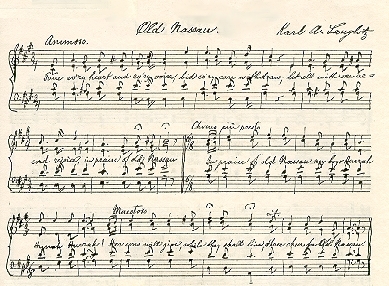 Old Nassau. Karl A. Langlotz
Animoso.
Tune every heart and every voice, bid every care withdraw, let all with one a-
Chorus più presto
cord rejoice, in praise of old Nassau In praise of old Nassau my boys Hurrah
Maestoso
Hurrah Hurrah! Her sons will give, while they shall live, three cheers for Old Nassau